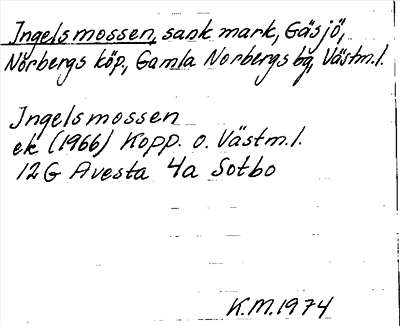 Ingelsmossen, sank mark, Gäsjö,
Norbergs köp., Gamla Norbergs bg, Västm.l.
Ingelsmossen
ek (1966) Kopp. o. Västm.l.
12G Avesta 4a Sotbo
K.M.1974